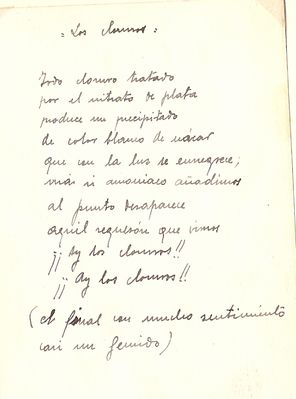 = Los cloruros =
Todo cloruro tratado
por el nitrato de plata
produce un precipitado
de color blanco de nácar
que con la luz se ennegrece;
más si amoniaco añadimos
al punto desaparece
aquel requesón que vimos
¡¡ Ay los cloruros!!
¡¡ Ay los cloruros!!
(el final con mucho sentimiento
casi un gemido)